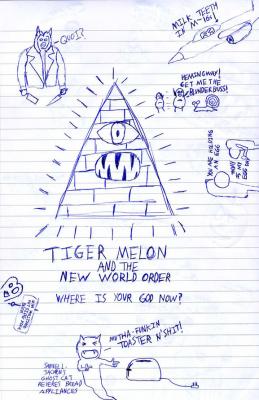 QUOI?
MILK TEETH
IS M-101
HEMINGWAY!
GET ME THE
BLUNDERBUSS!
YOU ARE HOLDING
AN EGG
TIGER MELON
AND THE
NEW WORLD ORDER
WHERE IS YOUR GOD NOW?
MUTHA-FUNKIN
TOASTER N'SHIT!
SAMUEL L.
JACKSON'S
GHOST CAT
REVERES BREAD
APPLIANCES